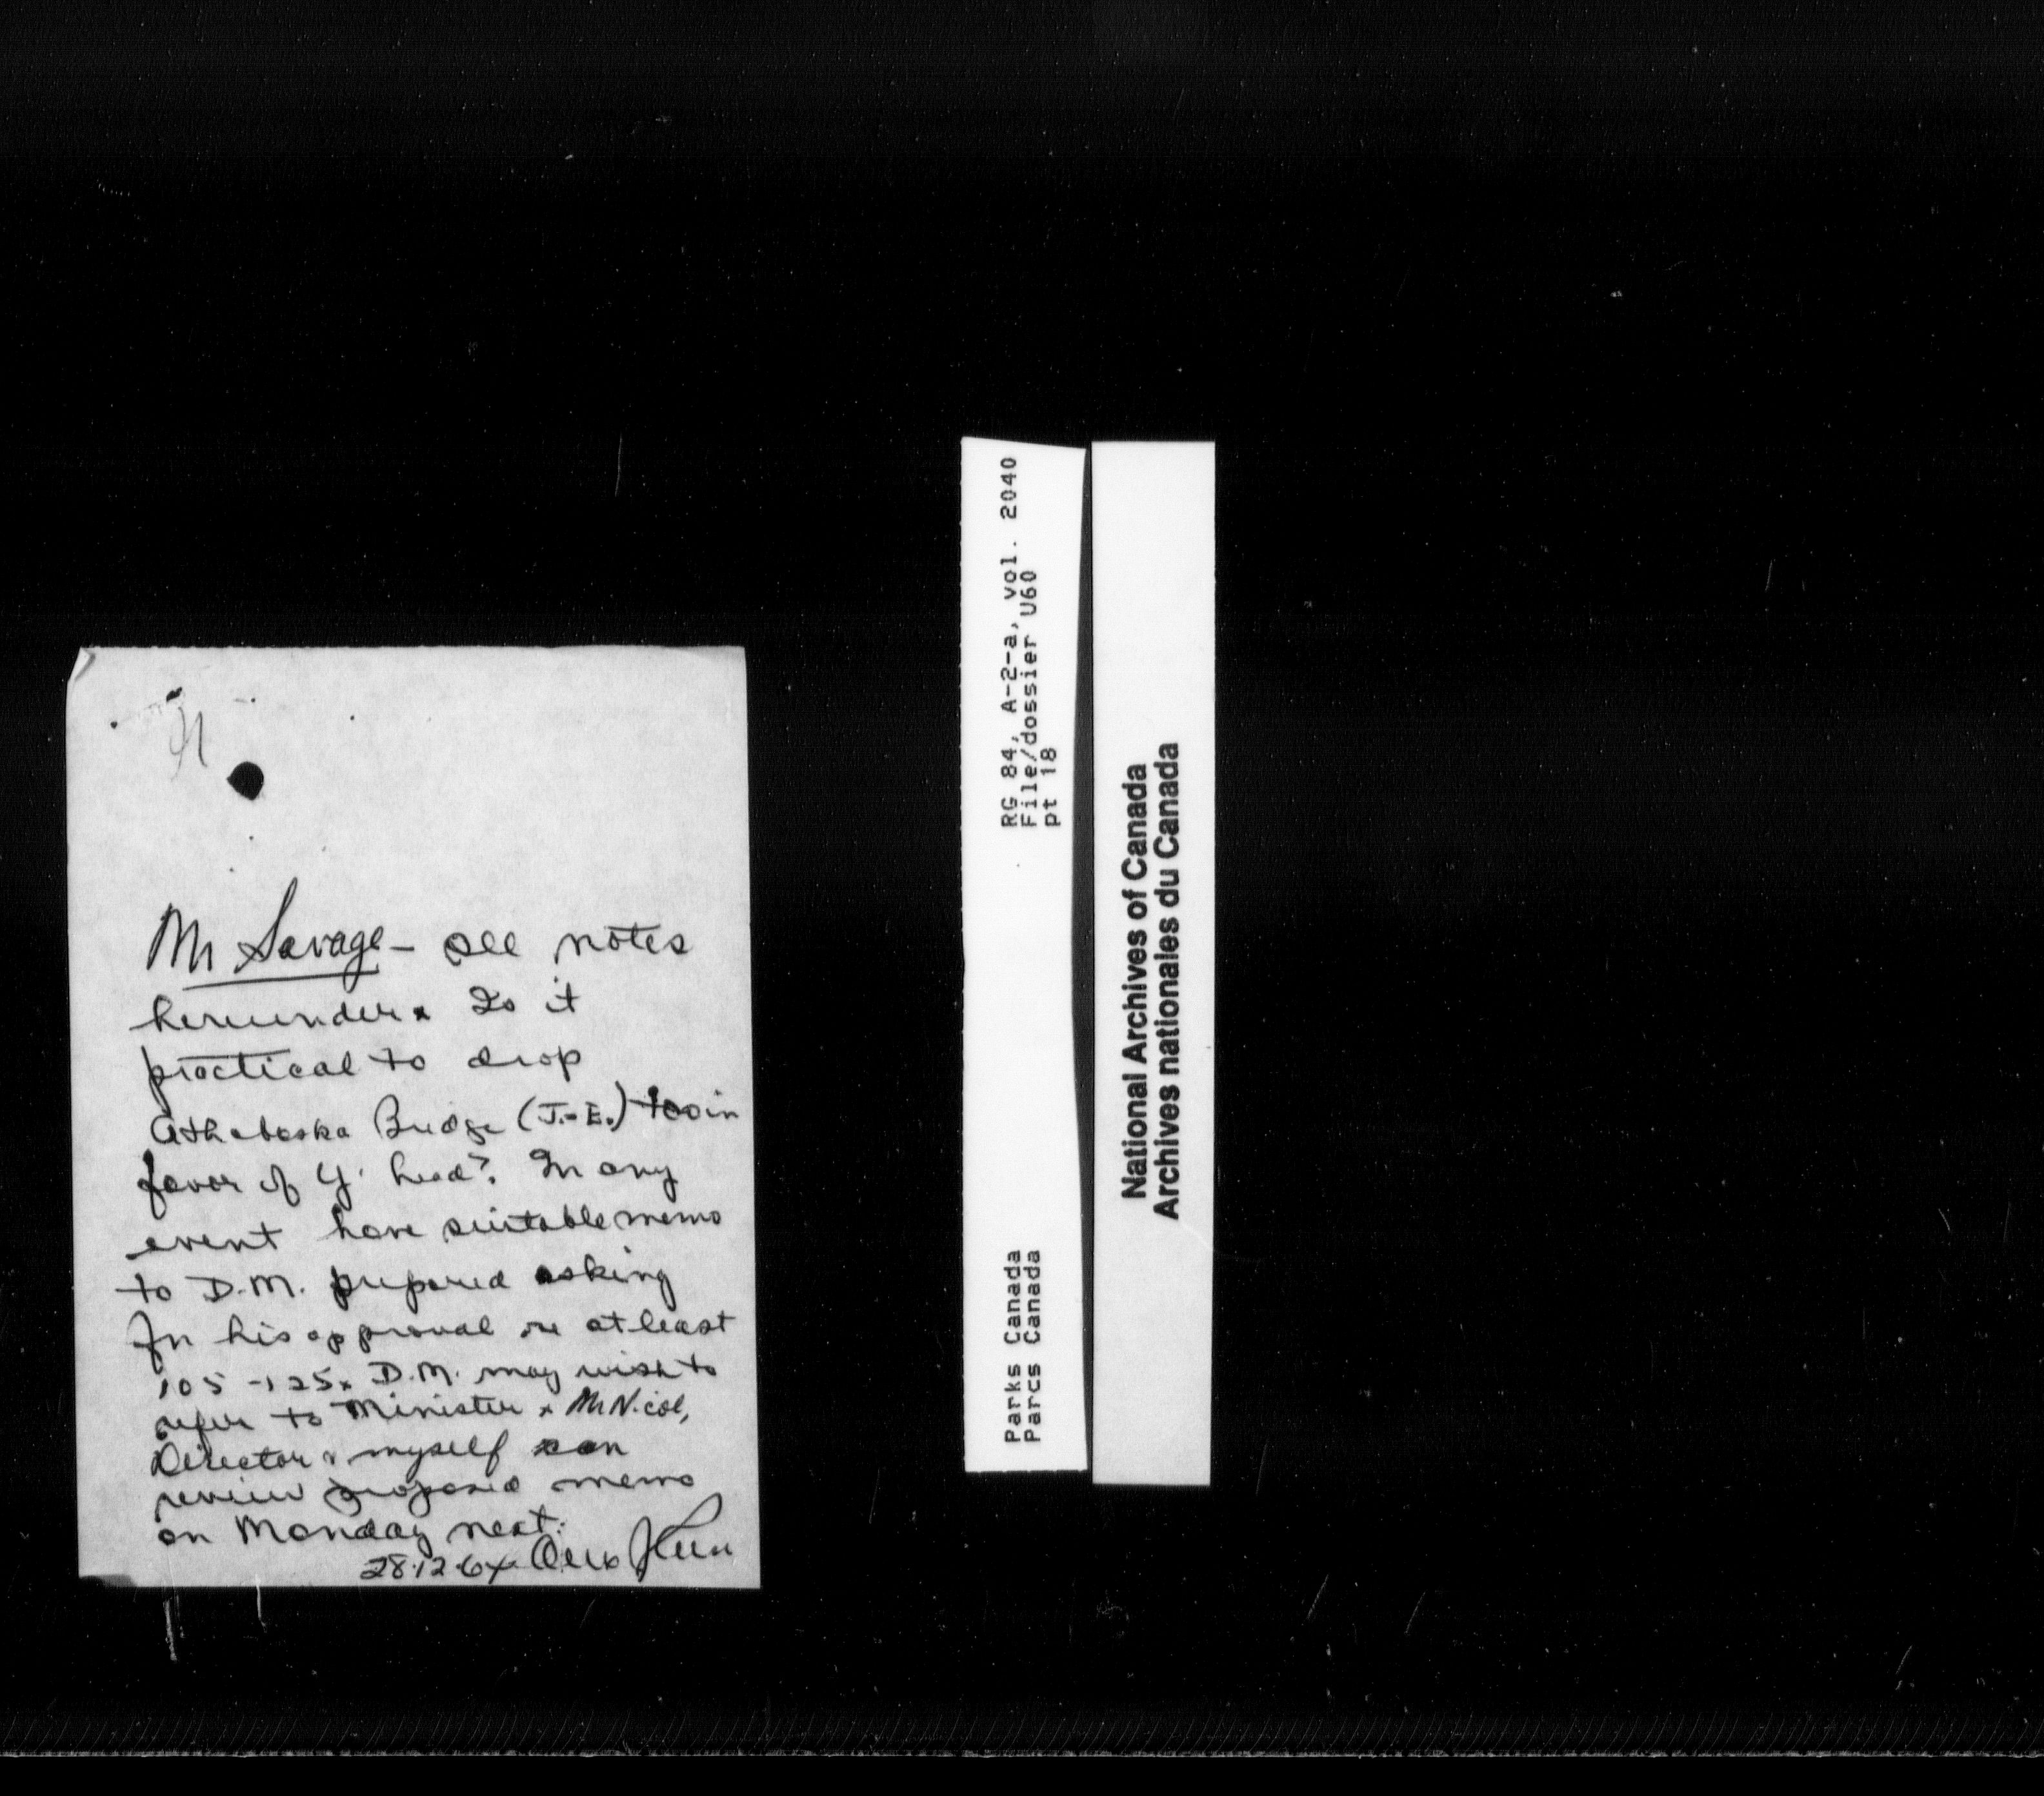 Mr Savage – see notes
hereunder. Is it
practical to drop
Athabaska Bridge (J.-E.) in
favor of Y. head? In any
event have suitable memo
to D.M. prepared asking
for his approval re at least
105 - 125. D.M. may wish to
refer to Minister. Mr Nicol,
Director & myself can
review proposed memo
on Monday next.
28.12.64
RG 84, A-2-a, vol. 2040
File/dossier U60
pt 18
Parks Canada
Parcs Canada
National Archives of Canada
Archives nationales du Canada